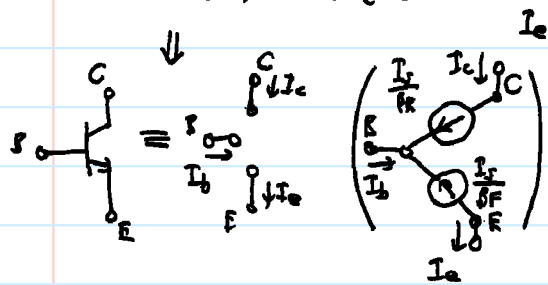 Ie
⇓
C
B
E
≡
C
↓Ic
B
Ib
↓Ie
E
Is/βR
Ic↓
C
B
Ib
Is/βF
E
Ie